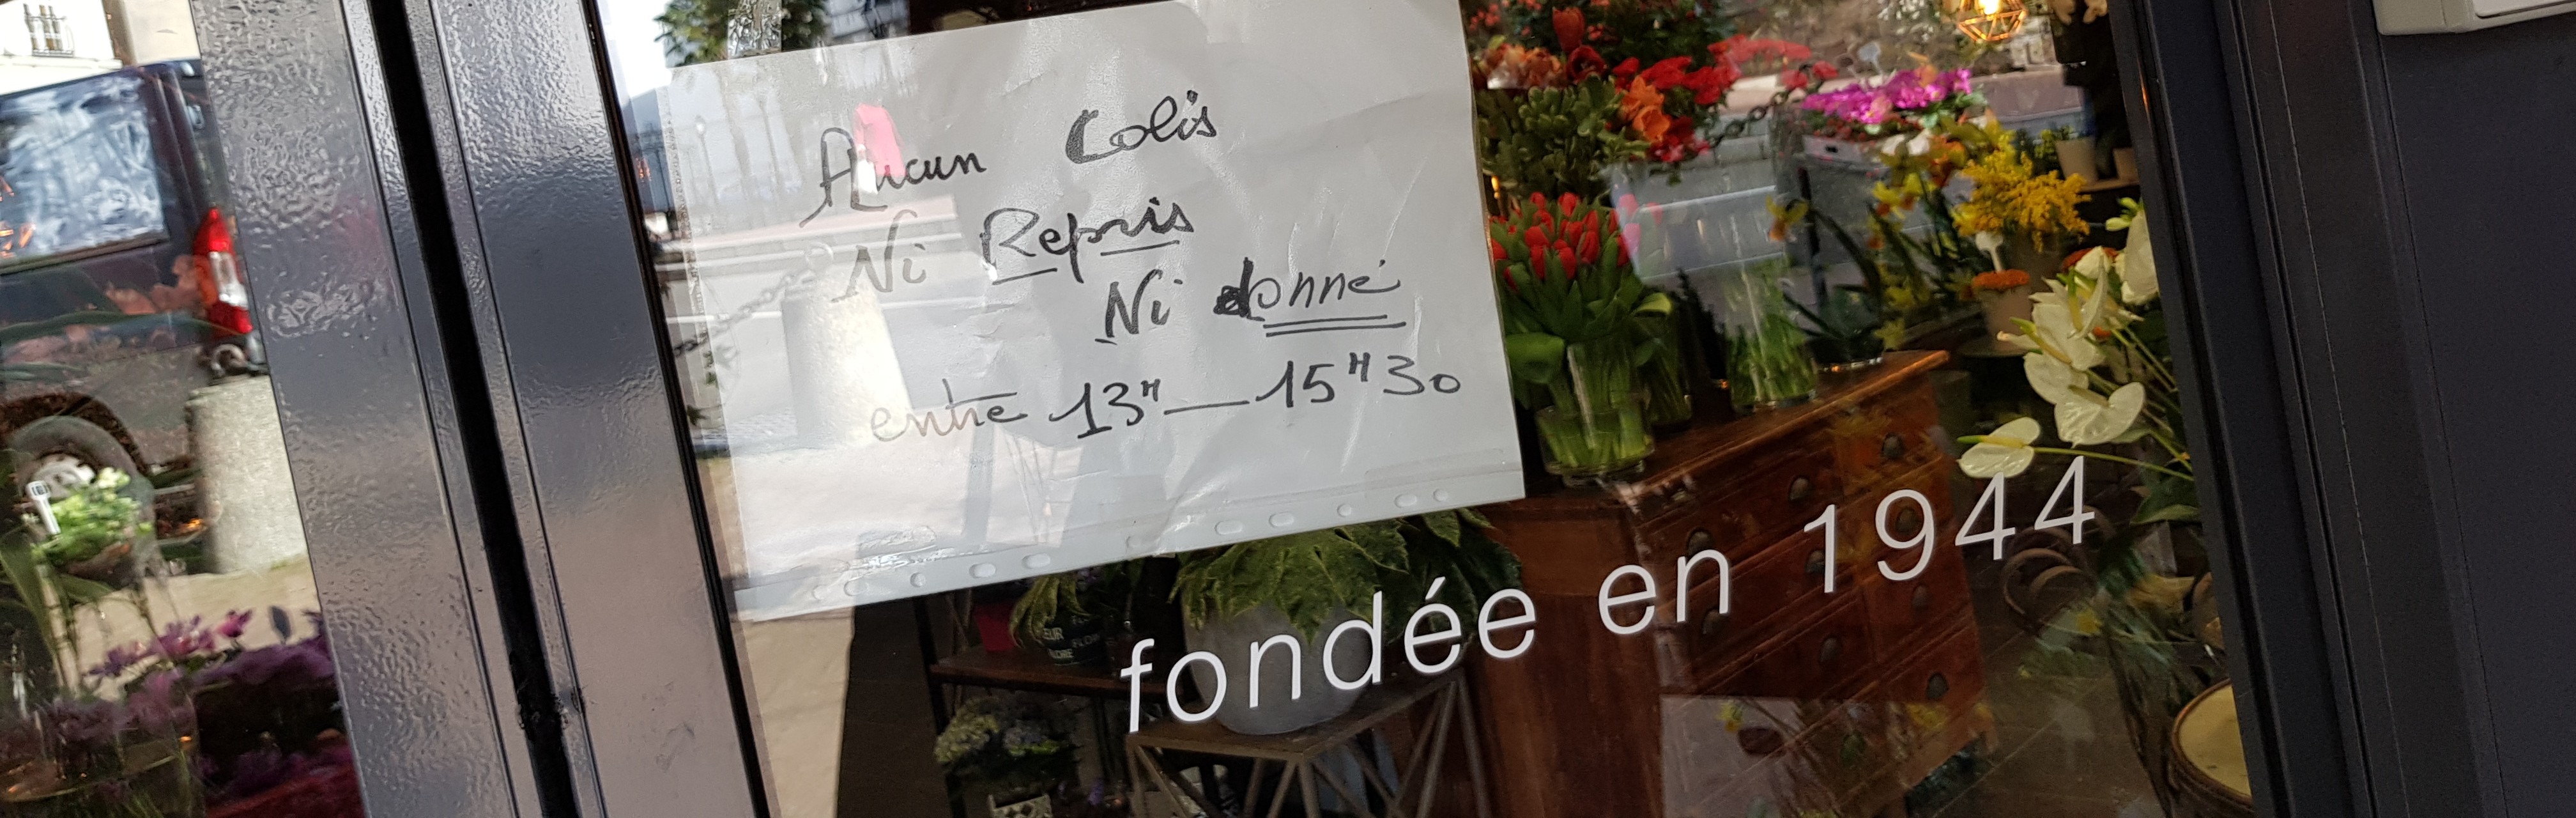 Aucun Colis
Ni Repris
Ni donné
entre 13H—15H30
fondée en 1944